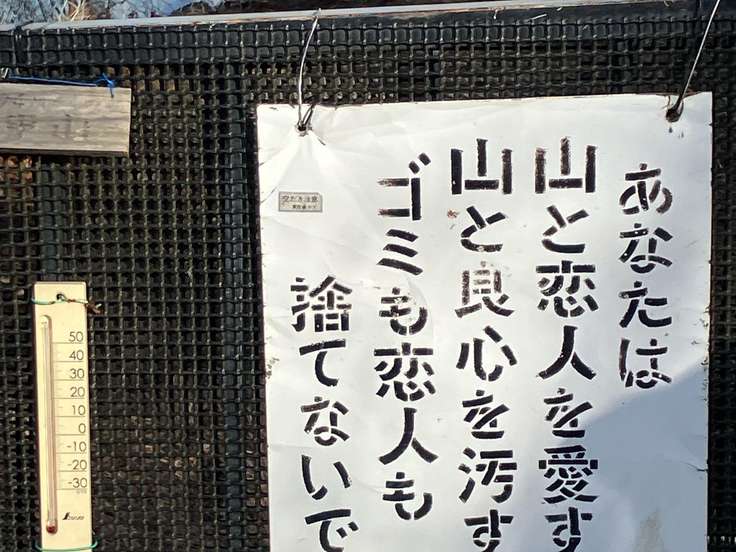 あなたは
山と恋人を愛す
山と良心を汚す
ゴミも恋人も
捨てないで
50
40
30
20
10
0
-10
-20
-30